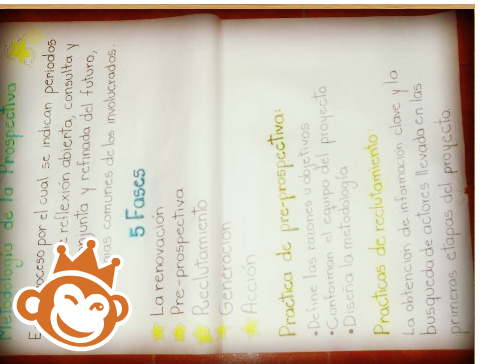 Metodología de la Prospectiva
oceso por el cual se indican periodos
reflexión abierta, consulta y
njunta y refinada del futuro,
comunes de los involucrados.
5 Fases
La renovación
Pre-prospectiva
Reclutamiento
Generación
Acción
Practica de pre-prospectiva:
• Define las razones u objetivos
• Conforman el equipo del proyecto
• Diseña la metodología
Practicas de reclutamiento
La obtención de información clave y la
busqueda de actores llevada en las
primeras etapas del proyecto.